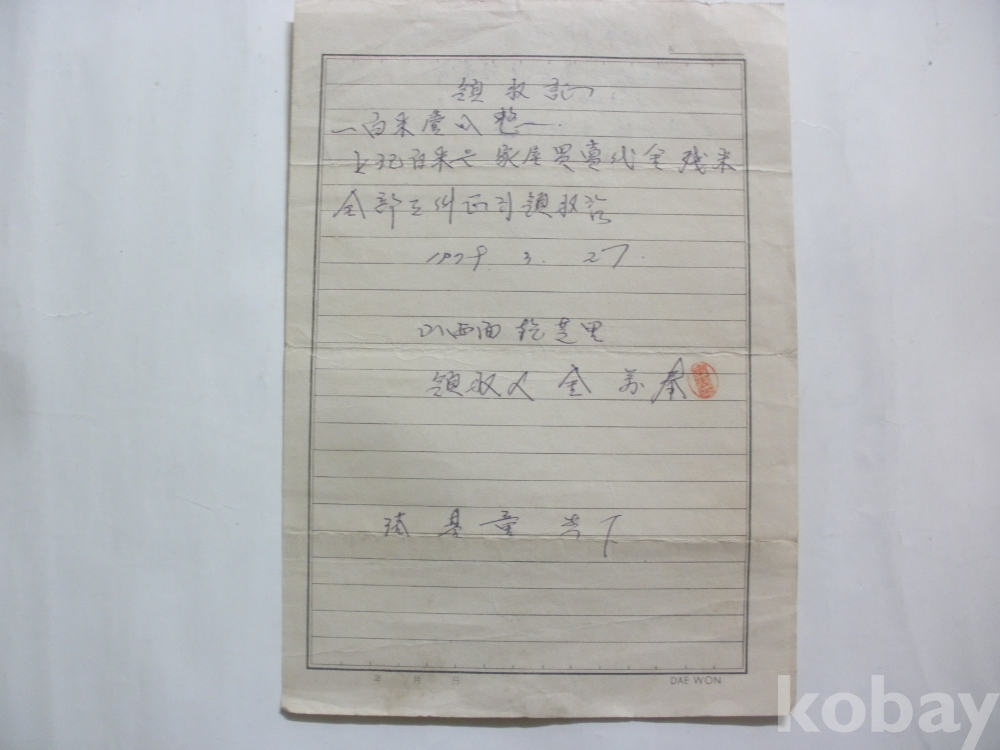 領收証
一. 白米壹叺整一.
上記白米는 家屋買賣代金 残米
全部로 正히 領收
1979. 3. 27.
西面 芝里
領收人 金 萬 奉
基 童 貴下
年 月 日
DAE WON
kobay